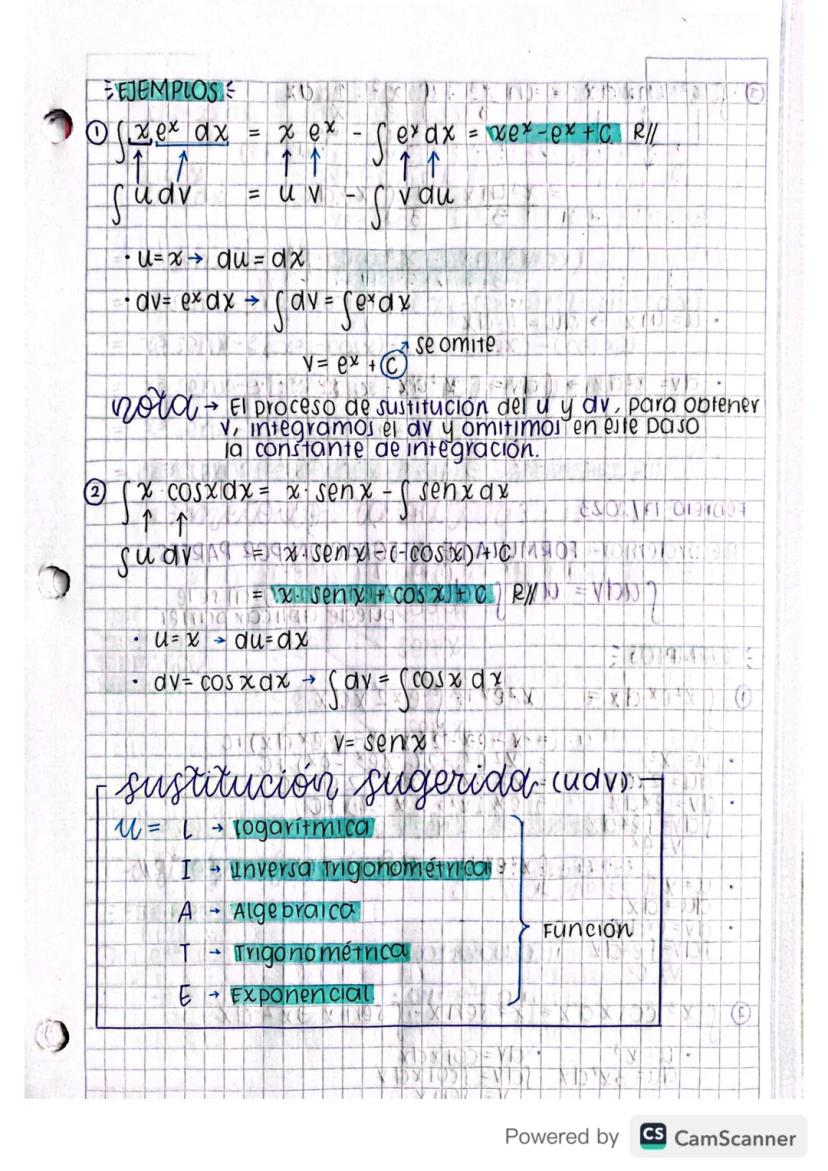 EJEMPLOS
① ∫ x eˣ dx = x eˣ - ∫ eˣ dx = xeˣ - eˣ + C R//
∫ u dv = u v - ∫ v du
· u = x → du = dx
· dv = eˣ dx → ∫ dv = ∫ eˣ dx
se omite
v = eˣ + C
nota → El proceso de sustitución del u y dv, para obtener
v, integramos el dv y omitimos en este paso
la constante de integración.
② ∫ x cosx dx = x · senx - ∫ senx dx
∫ u dv = x · senx - (-cosx) + C
= x · senx + cosx + C R//
· u = x → du = dx
· dv = cosx dx → ∫ dv = ∫ cosx dx
v = senx
sustitución sugerida (udv)
u = L → logarítmica
I → Inversa Trigonométrica
A → Algebraica
Función
T → Trigonométrica
E → Exponencial
Powered by CS CamScanner